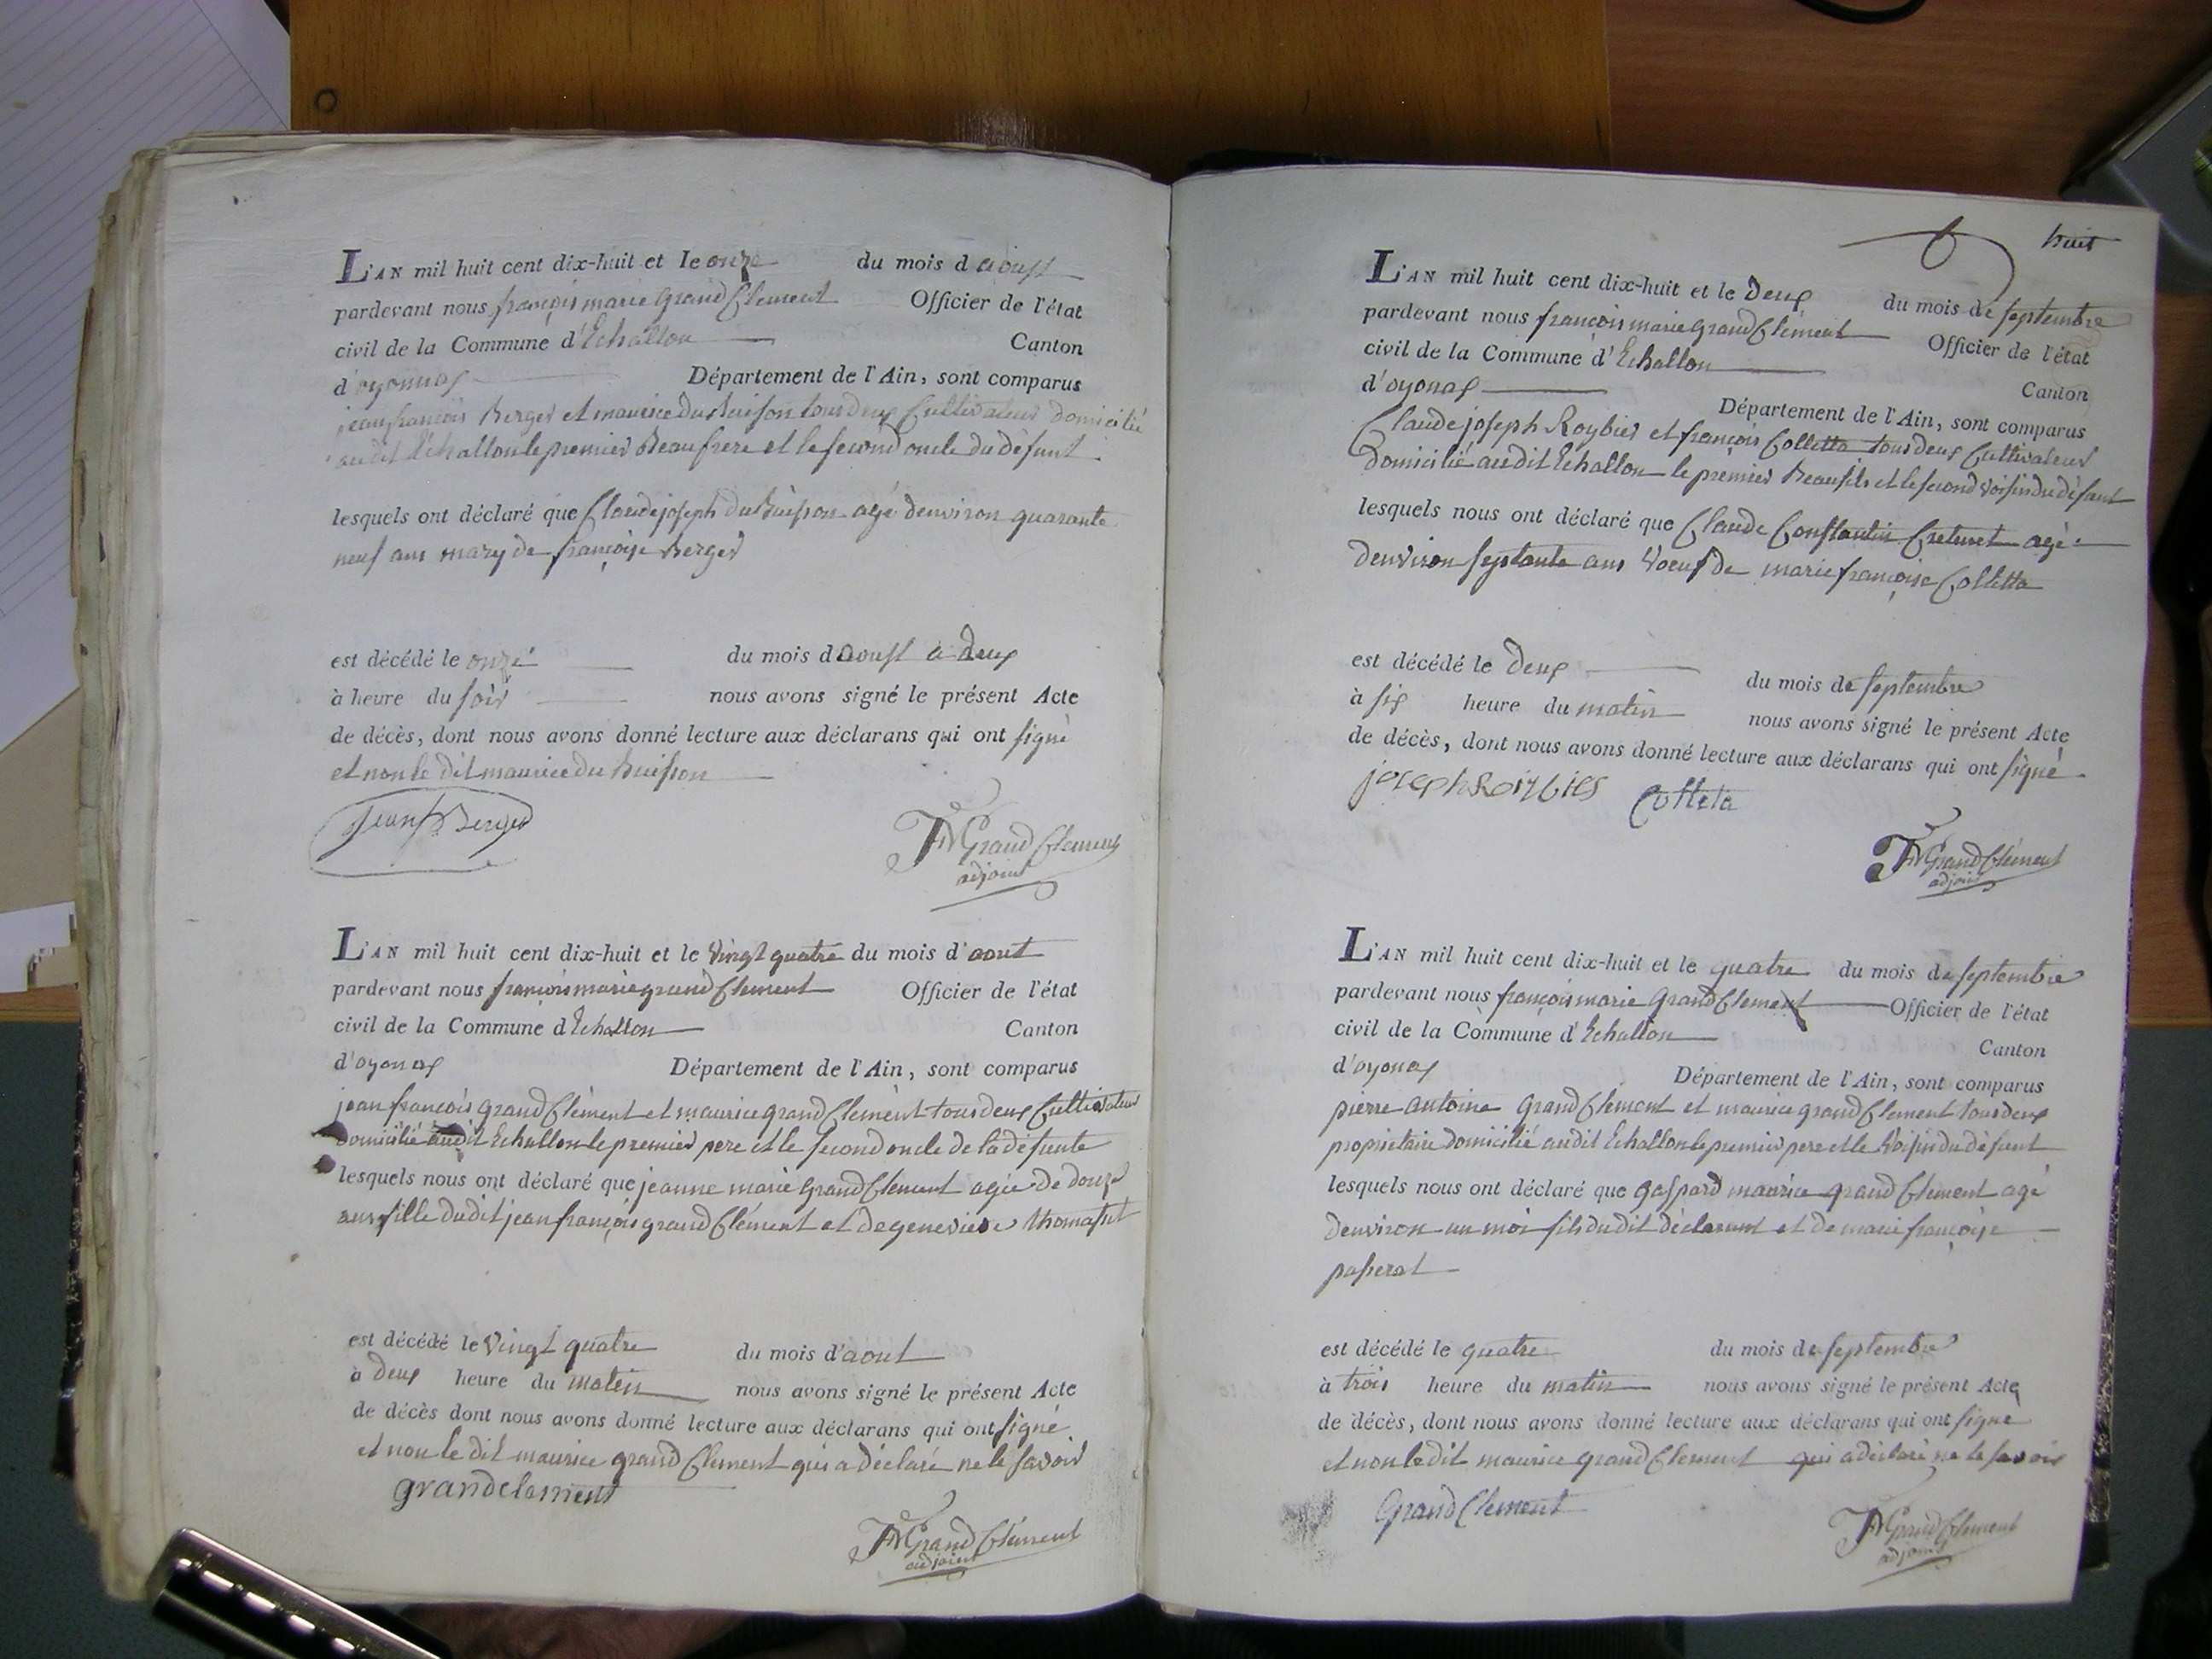 L'AN mil huit cent dix-huit et le onze du mois d aoust
pardevant nous françois marie grand Clement Officier de l'état
civil de la Commune d'Echallon Canton
d'oyonnas Département de l'Ain, sont comparus
jean françois Berger et maurice du Buisson tous deux Cultivateur domicilié
audit Echallon le premier Beaufrere et le second oncle du défunt
lesquels ont déclaré que Claude joseph du Buisson agé denviron quarante
neuf ans mary de françoise Berger
est décédé le onze du mois d aoust a deux
à heure du soir nous avons signé le présent Acte
de décès, dont nous avons donné lecture aux déclarans qui ont signé
et non le dit maurice du Buisson
jean f Berger
FM Grand Clement
adjoint
L'AN mil huit cent dix-huit et le vingt quatre du mois d'aout
pardevant nous françois marie grand Clement Officier de l'état
civil de la Commune d Echallon Canton
d'oyonas Département de l'Ain, sont comparus
jean françois grand Clément et maurice grand Clement tous deux Cultivateur
domicilié audit Echallon le premier pere et le second oncle de la défunte
lesquels nous ont déclaré que jeanne marie grand Clement agée de douze
ans fille dudit jean françois grand Clément et de genevieve thomasset
est décédé le vingt quatre du mois d'aout
à deux heure du matin nous avons signé le présent Acte
de décès dont nous avons donné lecture aux déclarans qui ont signé
et non le dit maurice grand Clement qui a déclaré ne le savoir
grandclement
FM Grand Clément
adjoint
huit
L'AN mil huit cent dix-huit et le deux du mois de septembre
pardevant nous françois marie grand Clément Officier de l'état
civil de la Commune d'Echallon Canton
d'oyonas Département de l'Ain, sont comparus
Claude joseph Roybier et françois Colletta tous deux Cultivateur
domicilié audit Echallon le premier Beaufils et le second voisin du défunt
lesquels nous ont déclaré que Claude Constantin Cretenet agé
denviron septante ans voeuf de marie françoise Colletta
est décédé le deux du mois de septembre
à six heure du matin nous avons signé le présent Acte
de décès, dont nous avons donné lecture aux déclarans qui ont signé
joseph Roybier Colleta
FM Grand Clément
adjoint
L'AN mil huit cent dix-huit et le quatre du mois de septembre
pardevant nous françois marie Grand Clement Officier de l'état
civil de la Commune d'Echallon Canton
d'oyonas Département de l'Ain, sont comparus
pierre antoine Grand Clement et maurice grand Clement tous deux
proprietaire domicilié audit Echallon le premier pere et le voisin du défunt
lesquels nous ont déclaré que gaspard maurice grand Clement agé
denviron un moi fils du dit déclarant et de marie françoise
passerat
est décédé le quatre du mois de septembre
à trois heure du matin nous avons signé le présent Acte
de décès, dont nous avons donné lecture aux déclarans qui ont signé
et non ledit maurice grand Clement qui a déclaré ne le savoir
Grand Clement
FM Grand Clement
adjoint